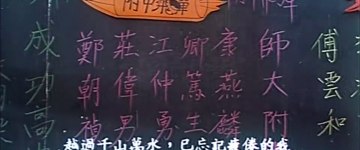 附中飛彈
傅雲和
師大附
康燕麟
卿篤生
江仲勇
莊偉男
鄭朝禎
成功高
越過千山萬水，已忘記疲倦的我